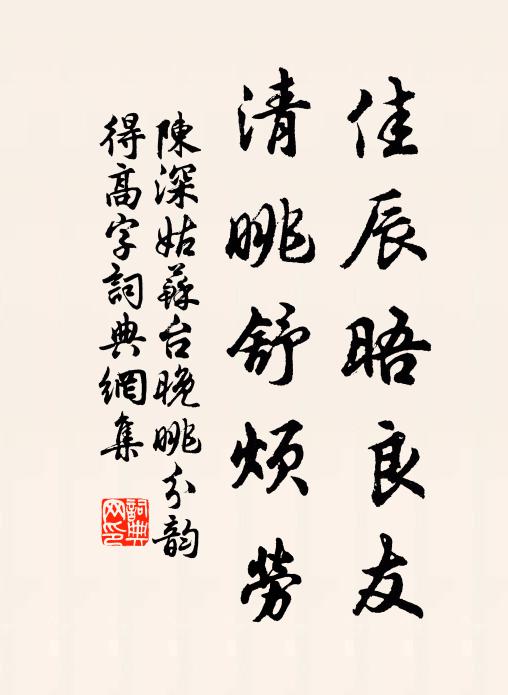 佳辰晤良友
清眺舒煩勞
陳深姑蘇台晚眺分韻
得高字詞典網集
詞典网印